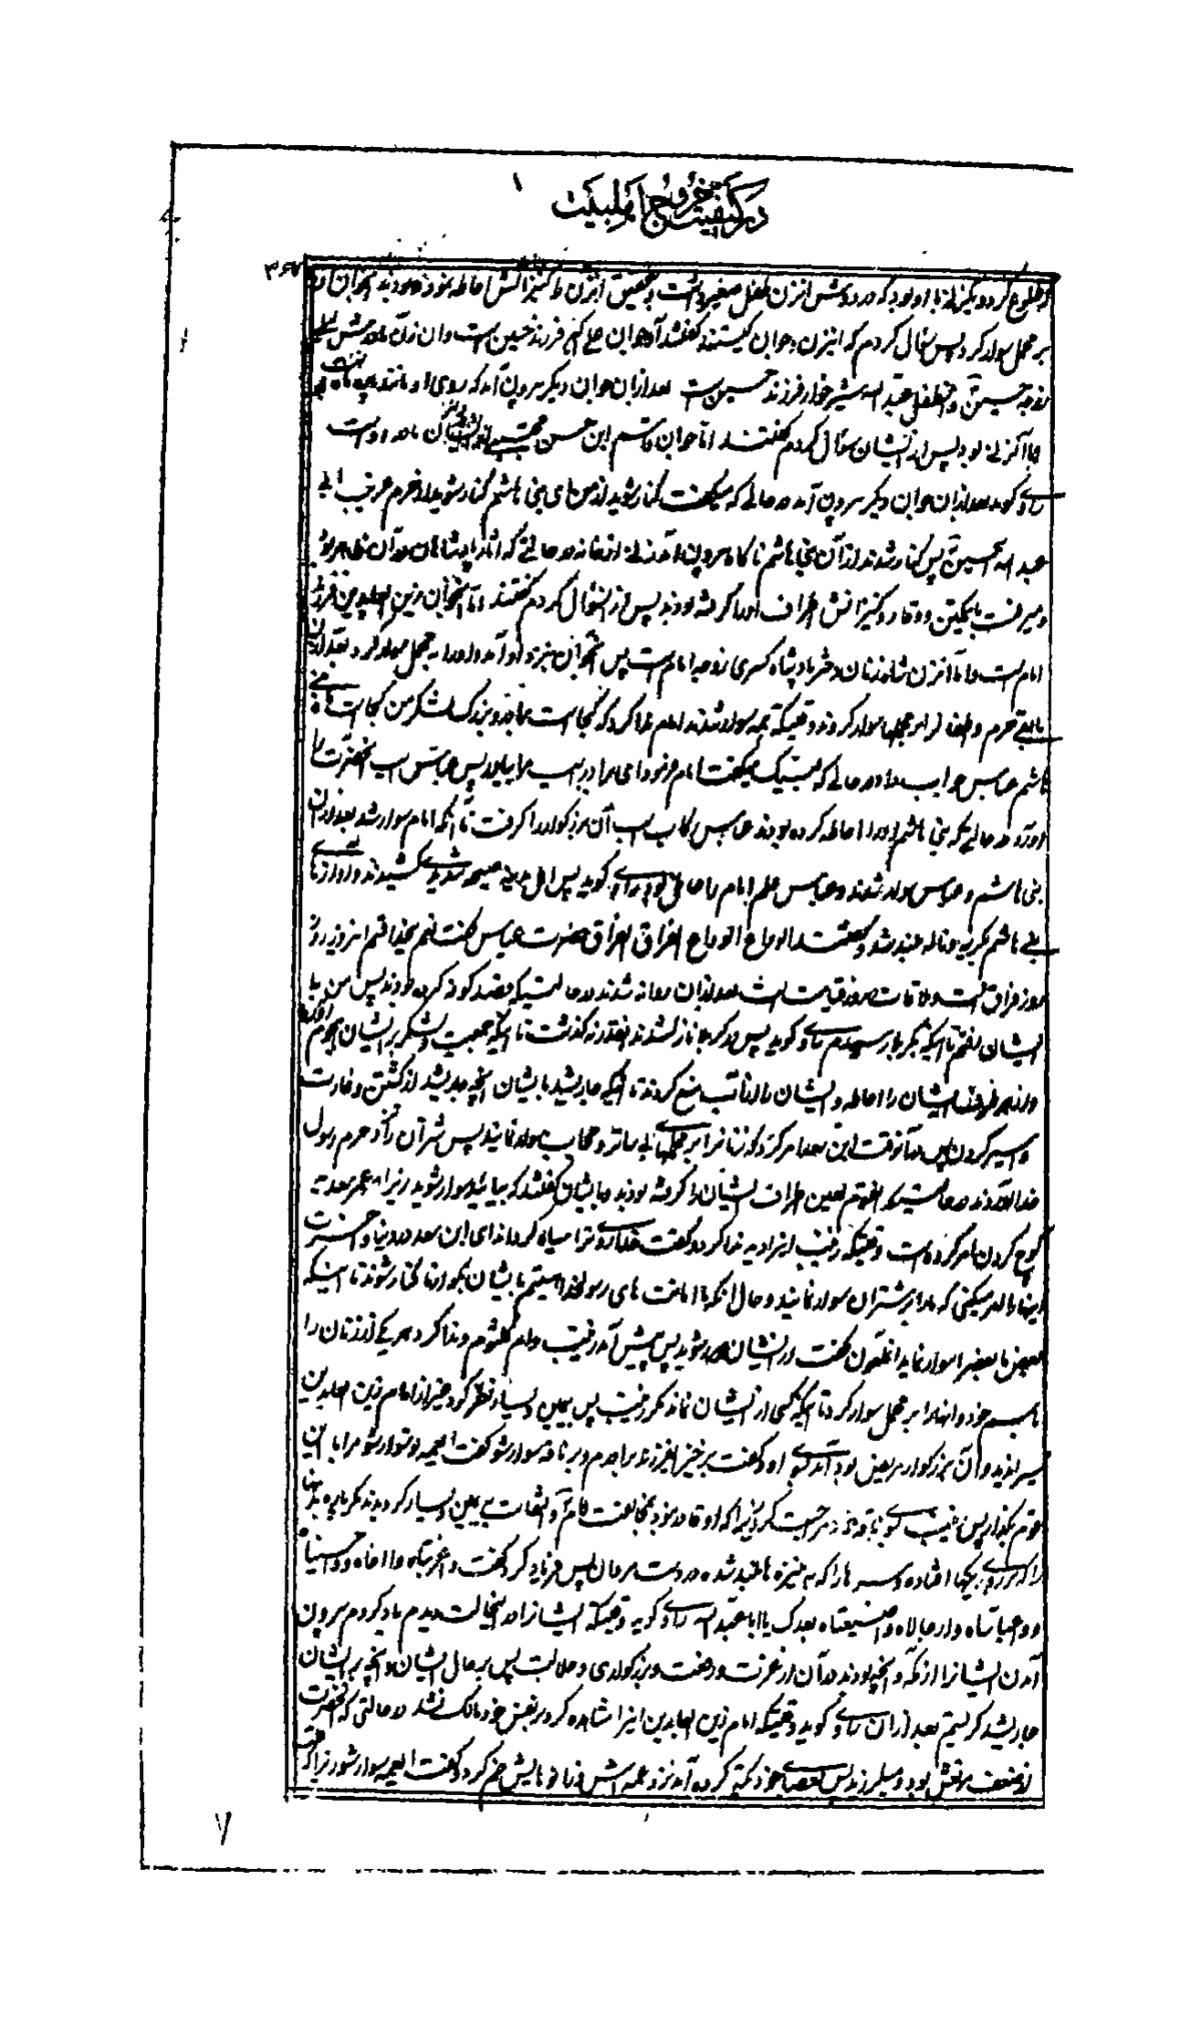 در کیفیت خروج اهلبیت
۳۶۷
طلوع کرد و دیگر زنی با او بود که در دوشش انزن طفل صغیر داشت و کنیزانش احاطه نموده بودند
بر محمل سوار کرد پس سؤال کردم که اینزن و جوان کیستند گفتند آن جوان علی اکبر فرزند حسین است وان زن مادرش لیلی
زوجه حسین و طفل عبد الله شیر خوار فرزند حسین است بعد ازان جوان دیگر بیرون آمد که روی او مانند پاره ماه
بود پس از ایشان سؤال کردم گفتند اما جوان قاسم ابن حسن مجتبی مادر اوست
راوی گوید بعد ازان جوان دیگر بیرون آمد در حالی که میگفت کنار شوید از من ای بنی هاشم کنار شوید از حرم غریب ابی
عبد الله الحسین پس کنار شدند از آن بنی هاشم ناگاه بیرون آمد زنی از خانه در حالتی که آثار پادشاهان در آن
و میرفت با تمکین و وقار و کنیزانش اطراف اورا گرفته بودند پس از ان سؤال کردم گفتند اما انجوان زین العابدین فرزند
امام است و اما انزن شاه زنان دختر پادشاه کسری زوجه امام است پس انجوان نیز و او آمد و اورا بر محمل سوار کرد بعد ازان
باقی حرم و اطفال را بر محملها سوار کردند وقتیکه همه سوار شدند امام ندا کرد که کجاست برادرم و بزرگ لشکر من کجاست ماه بنی
هاشم عباس جواب داد در حالی که لبیک میگفت امام فرمود ای برادر اسب مرا بیاور پس عباس اسب انحضرت را
اورد در حالی که بنی هاشم اورا احاطه کرده بودند عباس رکاب اسب آن بزرگوار را گرفت تا آنکه امام سوار شد بعد ازان
بنی هاشم و عباس سوار شدند و عباس علم امام را راوی گوید پس اهل مدینه صیحه شدیدی کشیدند و اوازهای
بنی هاشم بگریه و ناله بلند شد و گفتند الوداع الوداع الفراق الفراق حضرت عباس گفت نعم بخدا قسم امروز روز
روز فراق است و ملاقات در روز قیامت است بعد ازان روانه شدند در حالتیکه قصد کوفه کرده بودند پس من با
ایشان رفتم تا آنکه بکربلا رسیدم راوی گوید پس در کربلا نازل شدند انقدر نگذشت تا آنکه جمعیت لشکر بر ایشان هجوم آوردند
و از هر طرف ایشان را احاطه و ایشان را از آب منع کردند تا آنکه جاریشد بایشان انچه جاریشد از کشتن و غارت
و اسیر کردن پس در آنوقت ابن سعد امر کرد که زنانرا بر محملهای بی ساتر و حجاب سوار نمایند پس شتران را نزد حرم رسول
خدا آوردند در حالتیکه انقوم لعین اطراف ایشان را گرفته بودند و بایشان گفتند که بیائید سوار شوید زیرا عمر سعد به
کوچ کردن امر کرده است وقتیکه زینب انرا دید ندا کرد و گفت خدا روی ترا سیاه گرداند ای ابن سعد در دنیا و اخرت
اینها را امر میکنی که مارا بر شتران سوار نمایند و حال آنکه ما امانت های رسولخدا هستیم بایشان بگو از ما کنار شوند تا اینکه
بعض ما بعضرا سوار نماید انملعون گفت از ایشان دور شوید پس پیش آمد زینب و ام کلثوم و ندا کرد هر یک از زنان را
باسم خود و انهارا بر محمل سوار کرد تا آنکه کسی از ایشان نماند مگر زینب پس بیمین و یسار نظر کرد غیر از امام زین العابدین
کسیرا ندید و آن بزرگوار مریض بود آمد بسوی او و گفت برخیز ایفرزند برادرم و بر ناقه سوار شو گفت ایعمه تو سوار شو مرا با این
قوم بگذار پس زینب بسوی ناقه خود مراجعت کرد زیرا که او قادر نبود بمخالفت امام و التفات به یمین و یسار کرد ندید مگر پاره بدنها
را که بر روی ریگها افتاده و سرها را که به نیزه ها بلند شده در دست مردان پس فریاد کرد و گفت واغربتاه وااخاه واحسیناه
وواعباساه وارجالاه واضیعتاه بعدک یا ابا عبد الله راوی گوید وقتیکه ایشانرا در اینحالت دیدم یاد کردم بیرون
آمدن ایشانرا از مکه و انچه بودند در آن از عزت و رفعت و بزرگواری و جلالت پس بر حال ایشان و انچه بر ایشان
جاریشد گریستم بعد ازان راوی گوید وقتیکه امام زین العابدین اینرا مشاهده کرد بر نفس خود مالک نشد در حالتی که انحضرت
از ضعف مرتعش بود و میلرزید پس بعصای خود تکیه کرده آمد نزد عمه اش و زانوهایش خم کرد و گفت ایعمه سوار شو زیراکه
۷